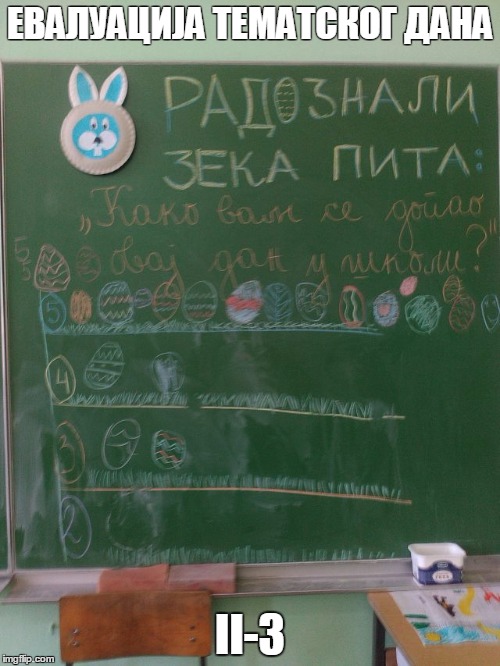 ЕВАЛУАЦИЈА ТЕМАТСКОГ ДАНА
РАДОЗНАЛИ
ЗЕКА ПИТА:
„Како вам се допао
овај дан у школи?"
5
5
5
4
3
2
II-3
imgflip.com